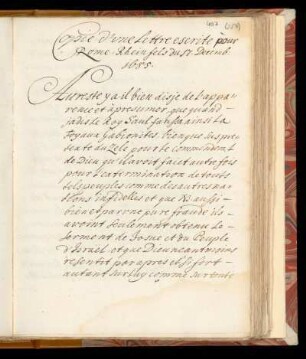 Copie d'une Lettre escrite pour
Rome. Rheinfels du 17. Decemb.
1655.
Au reste y a il bien disje de l'appa-
rence et à presumer que quand
jadis le Roy Saul faussa ainsi la
foy aux Gabionites bienque sus pre-
texte du Zele pour le commandement
de Dieu qu'il avoit faict autrefois
pour l'extermination de touts
tels peuples comme des autres na-
tions infidelles et que
bien et par ne pure fraude ils
avoint seulement obtenu le
serment de Josue et du Peuple
d'Israel, et que Dieu neautmoins
resentit par apres et si fort
autant sur luy comme sur toute